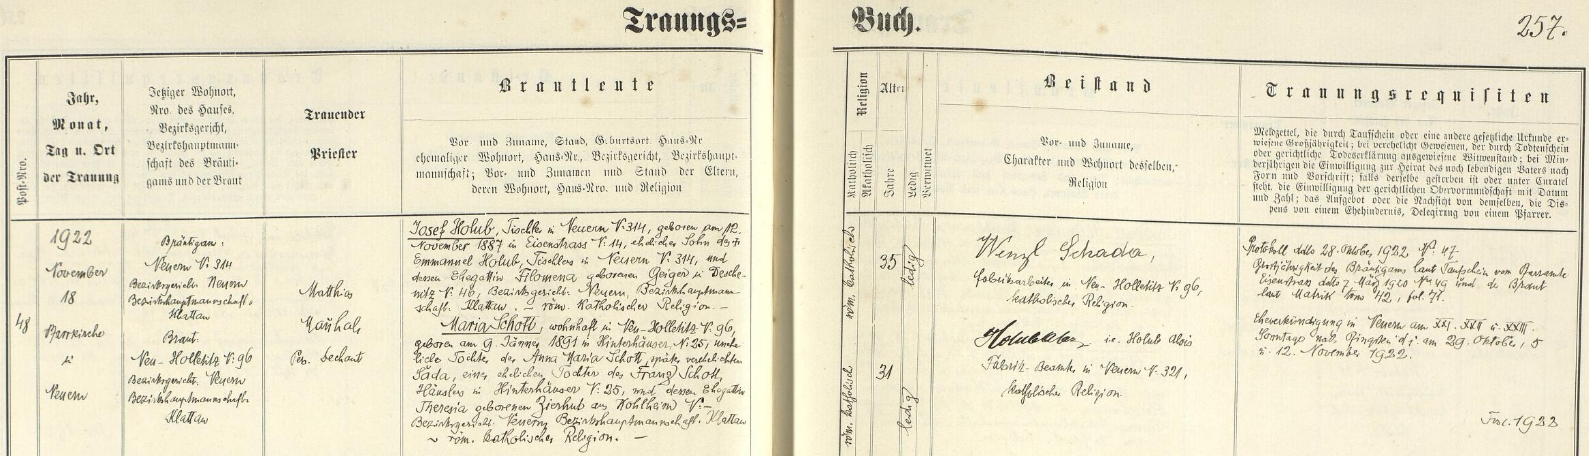 Trauungs=
Buch.
257.
Post-Nro.
Jahr,
Monat,
Tag u. Ort
der Trauung
Jetziger Wohnort,
Nro. des Hauses,
Bezirksgericht,
Bezirkshauptmann-
schaft des Bräuti-
gams und der Braut
Trauender
Priester
Brautleute
Vor und Zuname, Stand, Geburtsort Haus-Nr
ehemaliger Wohnort, Haus-Nr., Bezirksgericht, Bezirkshaupt-
mannschaft; Vor- und Zunamen und Stand der Eltern,
deren Wohnort, Haus-Nro. und Religion
Religion
Katholisch
Akatholisch
Alter
Jahre
Ledig
Verwitwet
Beistand
Vor- und Zuname,
Charakter und Wohnort desselben,
Religion
Trauungsrequisiten
Meldzettel, die durch Taufschein oder eine andere gesetzliche Urkunde er-
wiesene Großjährigkeit; bei verehelicht Gewesenen, der durch Todtenschein
oder gerichtliche Todeserklärung ausgewiesene Witwenstand; bei Min-
derjährigen die Einwilligung zur Heirat des noch lebendigen Vaters nach
Form und Vorschrift; falls derselbe gestorben ist oder unter Curatel
steht, die Einwilligung der gerichtlichen Obervormundschaft mit Datum
und Zahl; das Aufgebot oder die Nachsicht von demselben, die Dis-
pens von einem Ehehindernis, Delegirung von einem Pfarrer.
48
1922
November
18
Pfarrkirche
in
Neuern
Bräutigam:
Neuern N: 314
Bezirksgericht: Neuern
Bezirkshauptmannschaft:
Klattau
Braut:
Neu-Holletitz N: 96
Bezirksgericht: Neuern
Bezirkshauptmannschaft:
Klattau
Matthias
Mauhal
Dechant
Josef Holub, Tischler in Neuern N: 314, geboren am 12.
November 1887 in Eisenstrass N: 14, ehelicher Sohn des
Emmanuel Holub, Tischlers in Neuern N: 314, und
dessen Ehegattin Filomena geborenen Geiger in Desche-
nitz N: 46, Bezirksgericht: Neuern, Bezirkshauptmann-
schaft: Klattau, – röm. katholischer Religion. –
Maria Schott, wohnhaft in Neu-Holletitz N: 96,
geboren am 9. Jänner 1891 in Hinterhäuser N: 25, unehe-
liche Tochter der Anna Maria Schott, später verehelichten
Sáda, einer ehelichen Tochter des Franz Schott,
Häuslers in Hinterhäuser N: 25, und dessen Ehegattin
Theresia geborenen Zierhut aus Kohlheim N: –
Bezirksgericht: Neuern, Bezirkshauptmannschaft: Klattau
röm. katholischer Religion. –
röm. katholisch
35
ledig
röm. katholisch
31
ledig
Wenzl Schada,
Fabriksarbeiter in Neu-Holletitz N: 96,
katholischer Religion.
Holub Alois
Fabriks-Beamter in Neuern N: 321,
katholischer Religion
Protokoll ddto 28. Oktober 1922 N: 47
Großjährigkeit des Bräutigams laut Taufschein vom Pfarramte
Eisenstrass ddto 7. März 1920 N: 49 und die Braut
laut Matrik Tom: 42, fol. 71.
Eheverkündigung in Neuern am XXI. XXII u. XXIII.
Sonntage nach Pfingsten d. i. am 29. Oktober, 5
u. 12. November 1922.
1922